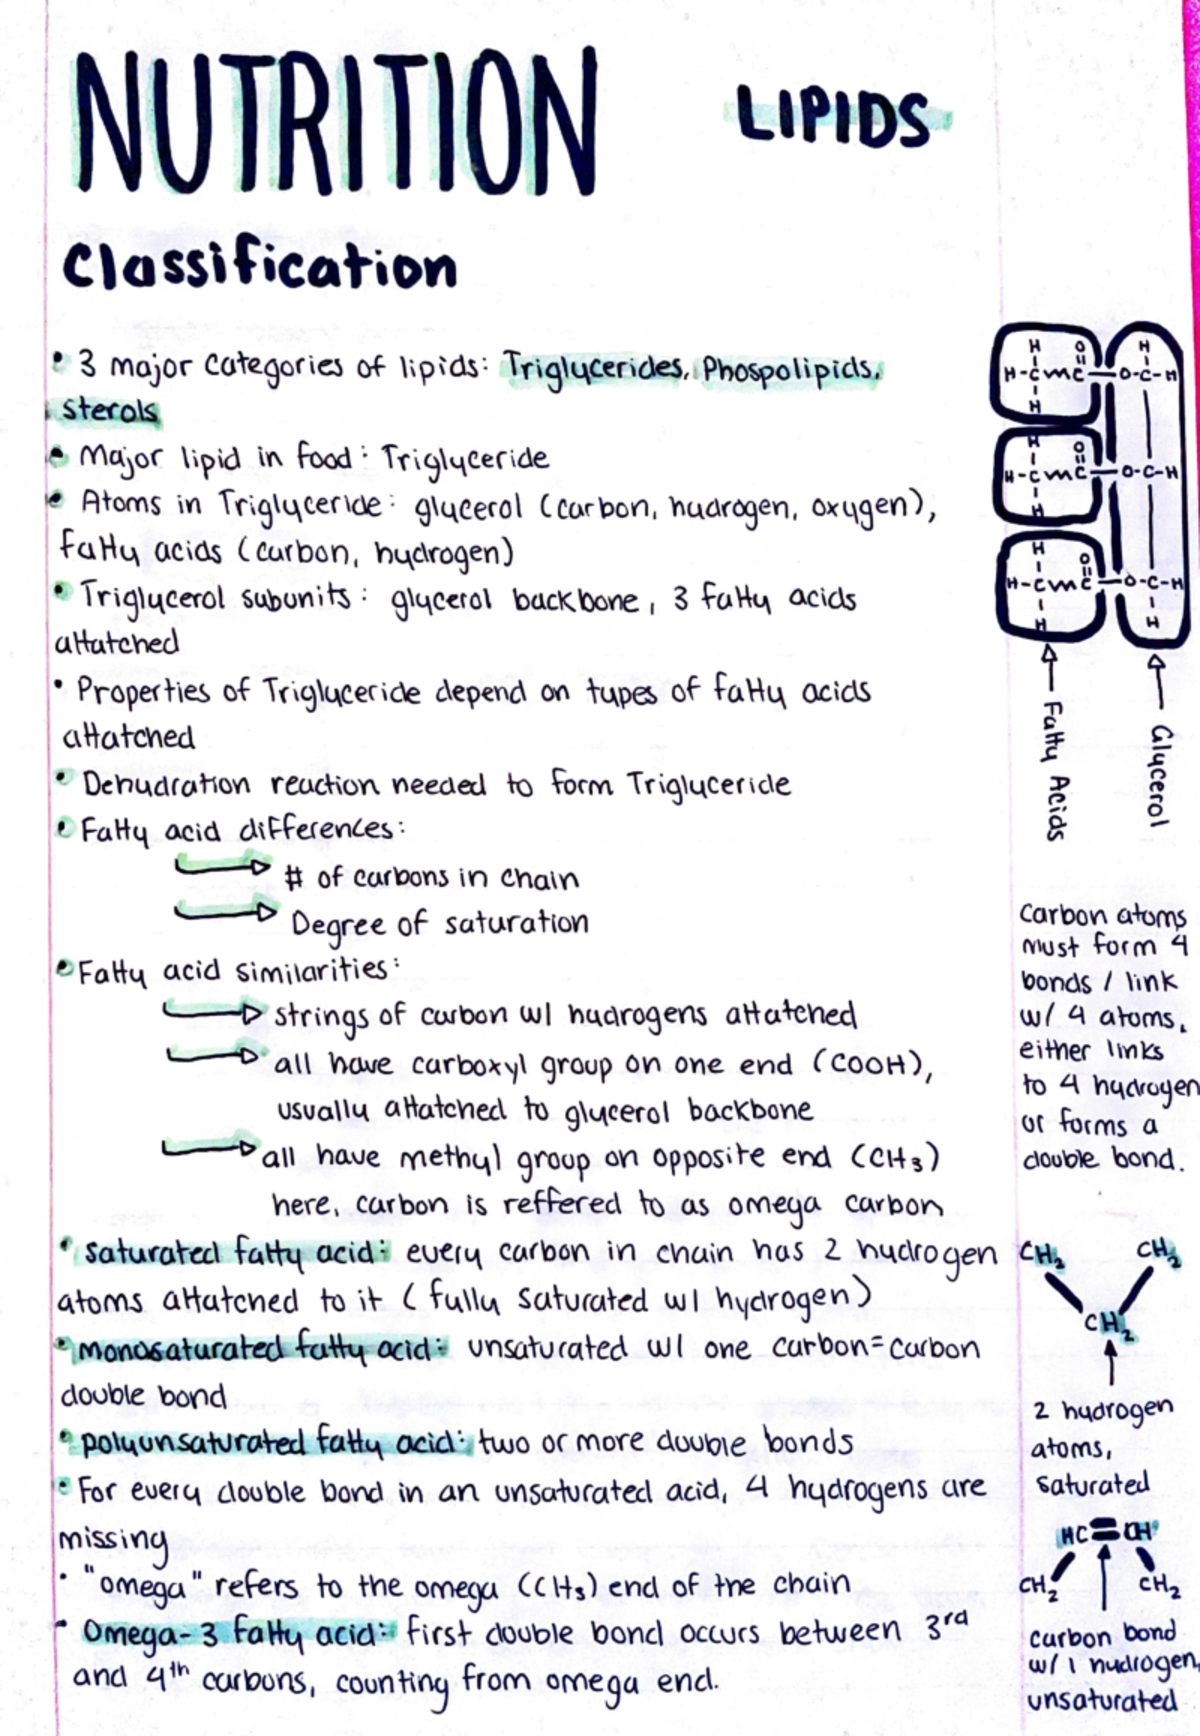 NUTRITION
LIPIDS
Classification
• 3 major categories of lipids: Triglycerides, Phospolipids,
sterols
• Major lipid in food: Triglyceride
• Atoms in Triglyceride: glycerol (carbon, hydrogen, oxygen),
fatty acids (carbon, hydrogen)
• Triglycerol subunits: glycerol backbone, 3 fatty acids
attatched
• Properties of Triglyceride depend on types of fatty acids
attatched
• Dehydration reaction needed to form Triglyceride
• Fatty acid differences:
# of carbons in chain
Degree of saturation
• Fatty acid similarities:
strings of carbon w/ hydrogens attatched
all have carboxyl group on one end (COOH),
usually attatched to glycerol backbone
all have methyl group on opposite end (CH₃)
here, carbon is reffered to as omega carbon
• saturated fatty acid: every carbon in chain has 2 hydrogen
atoms attatched to it (fully saturated w/ hydrogen)
• monosaturated fatty acid: unsaturated w/ one carbon=carbon
double bond
• polyunsaturated fatty acid: two or more double bonds
• For every double bond in an unsaturated acid, 4 hydrogens are
missing
• "omega" refers to the omega (CH₃) end of the chain
- Omega-3 fatty acid: first double bond occurs between 3rd
and 4th carbons, counting from omega end.
H O H
H-C C-O-C-H
H
H O
H-C C-O-C-H
H
H O
H-C C-O-C-H
H H
Fatty Acids
Glycerol
Carbon atoms
must form 4
bonds / link
w/ 4 atoms,
either links
to 4 hydrogen
or forms a
double bond.
CH₂ CH₂
CH₂
2 hydrogen
atoms,
saturated
HC=CH
CH₂ CH₂
carbon bond
w/ 1 hydrogen,
unsaturated